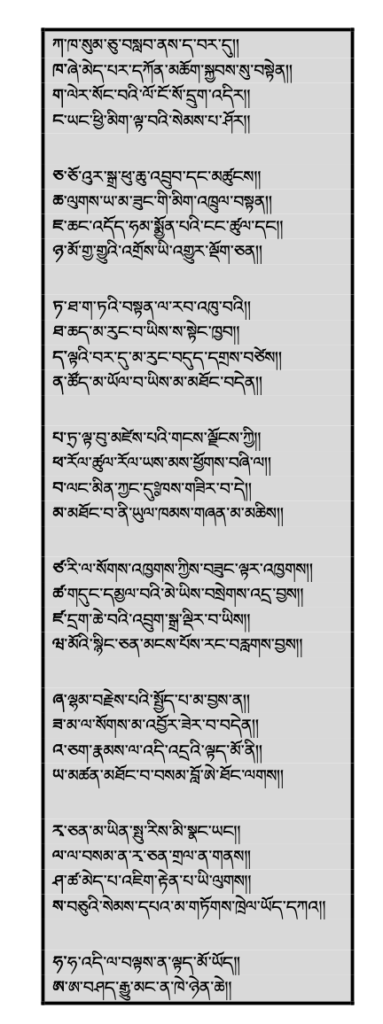 ཀ་ཁ་སུམ་ཅུ་བསླབ་ནས་ད་བར་དུ།།
ཁ་ཞེ་མེད་པར་དཀོན་མཆོག་སྐྱབས་སུ་བསྟེན།།
ག་ལེར་སོང་བའི་ལོ་ངོ་སོ་དྲུག་འདིར།།
ང་ཡང་ཕྱི་མིག་ལྟ་བའི་སེམས་པ་ཤོར།།
ཅ་ཅོ་འུར་སྒྲ་ཕུ་ཆུ་འབྲུབ་དང་མཚུངས།།
ཆ་ལུགས་ཡ་མ་ཟུང་གི་མིག་འཁྲུལ་བསྟན།།
ཇ་ཆང་འདོད་ཧམ་སྨྱོན་པའི་ངང་ཚུལ་དང།།
ཉ་མོ་གྱ་གྱུའི་འགྲོས་ཡི་འགྱུར་ལྡོག་ཅན།།
ཏ་ཐ་ག་ཏའི་བསྟན་ལ་རབ་འཁུ་བའི།།
ཐ་ཆད་མ་རུང་བ་ཡིས་ས་སྟེང་ཁྱབ།།
ད་ལྟའི་བར་དུ་མ་རུང་བདུད་དགྲས་བཙེས།།
ན་ཚོད་མ་ཡོལ་བ་ཡིས་མ་མཐོང་བདེན།།
པ་ཏྲ་ལྟ་བུ་མཛེས་པའི་གངས་ལྗོངས་ཀྱི།།
ཕ་རོལ་ཚུལ་རོལ་ཡས་མས་ཕྱོགས་བཞི་ལ།།
བ་ལང་མིན་ཀྱང་དུཿཁས་གཟིར་བ་དེ།།
མ་མཐོང་བ་ནི་ཡུལ་ཁམས་གཞན་མ་མཆིས།།
ཙ་རི་ལ་སོགས་འཁྱགས་ཀྱིས་བཟུང་ལྟར་འཁྱགས།།
ཚ་གདུང་དམྱལ་བའི་མེ་ཡིས་བསྲེགས་འདྲ་བྱས།།
ཛ་དྲག་ཆེ་བའི་འབྲུག་སྒྲ་ལྡིར་བ་ཡིས།།
ཝ་མོའི་སྙིང་ཅན་མངས་པོས་རང་བརླགས་བྱས།།
ཞ་ལྷམ་བརྗེས་པའི་སྤྱོད་པ་མ་བྱས་ན།།
ཟ་མ་ལ་སོགས་མ་འབྱོར་ཟེར་བ་བདེན།།
འ་ཅག་རྣམས་ལ་འདི་འདྲའི་ལྟད་མོ་ནི།།
ཡ་མཚན་མཐོང་བ་བསམ་བློ་ཨེ་ཐོང་ལགས།།
ར་ཅན་མ་ཡིན་སྤུ་རིས་མི་སྣང་ཡང།།
ལ་ལ་བསམ་ན་ར་ཅན་གྲལ་ན་གནས།།
ཤ་ཚ་མེད་པ་འཇིག་རྟེན་པ་ཡི་ལུགས།།
ས་བཅུའི་སེམས་དཔའ་མ་གཏོགས་ཁྲེལ་ཡོད་དཀའ།།
ཧ་ཧ་འདི་ལ་བལྟས་ན་ལྟད་མོ་ཡོད།།
ཨ་ཨ་བཤད་རྒྱུ་མང་ན་ཁེ་ཉེན་ཆེ།།